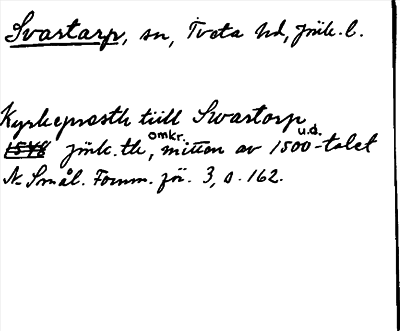 Svartarp, sn, Tveta hd, Jönk. l.
Kyrkepresth till Swartorp
omkr. u.d.
1548 Jönk. tb, mitten av 1500-talet
N. Smål. Fornm. för. 3, s. 162.